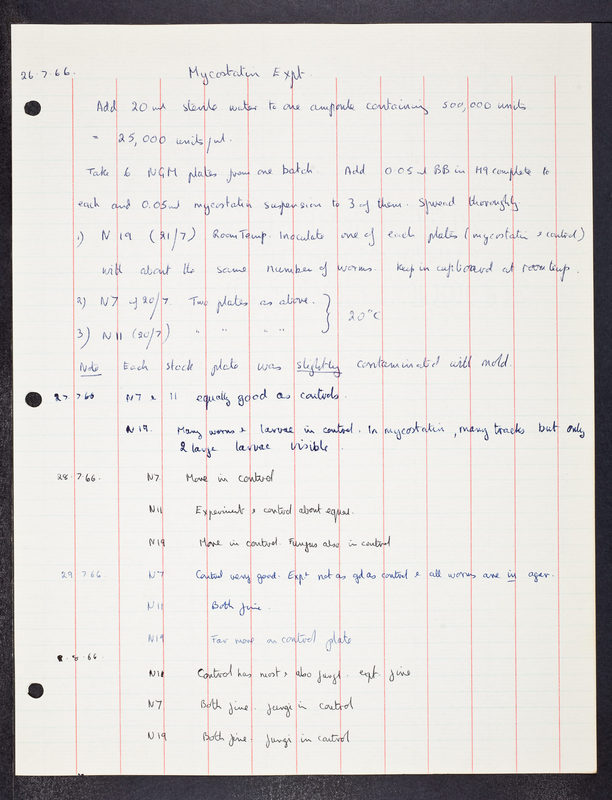 26.7.66. Mycostatin Expt.
Add 20 ml sterile water to one ampoule containing 500,000 units
= 25,000 units/ml.
Take 6 NGM plates from one batch. Add 0.05 ml BB in M9 complete to
each and 0.05 ml mycostatin suspension to 3 of them. Spread thoroughly.
1) N19 (21/7) Room Temp. Inoculate one of each plates (mycostatin & control)
with about the same number of worms. Keep in cupboard at room temp.
2) N7 of 20/7. Two plates as above.
3) N11 (20/7) " " " " } 20°C
Note Each stock plate was slightly contaminated with mold.
27.7.66 N7 & 11 equally good as controls.
N19. Many worms & larvae in control. In mycostatin, many tracks but only
2 large larvae visible.
28.7.66. N7 More in control
N11 Experiment & control about equal.
N19 More in control. Fungus also in control
29.7.66 N7 Control very good. Expt not as gd as control & all worms are in agar.
N11 Both fine.
N19 Far more on control plate
8.8.66 N11 Control has most, also fungi. expt. fine
N7 Both fine. fungi in control
N19 Both fine. fungi in control